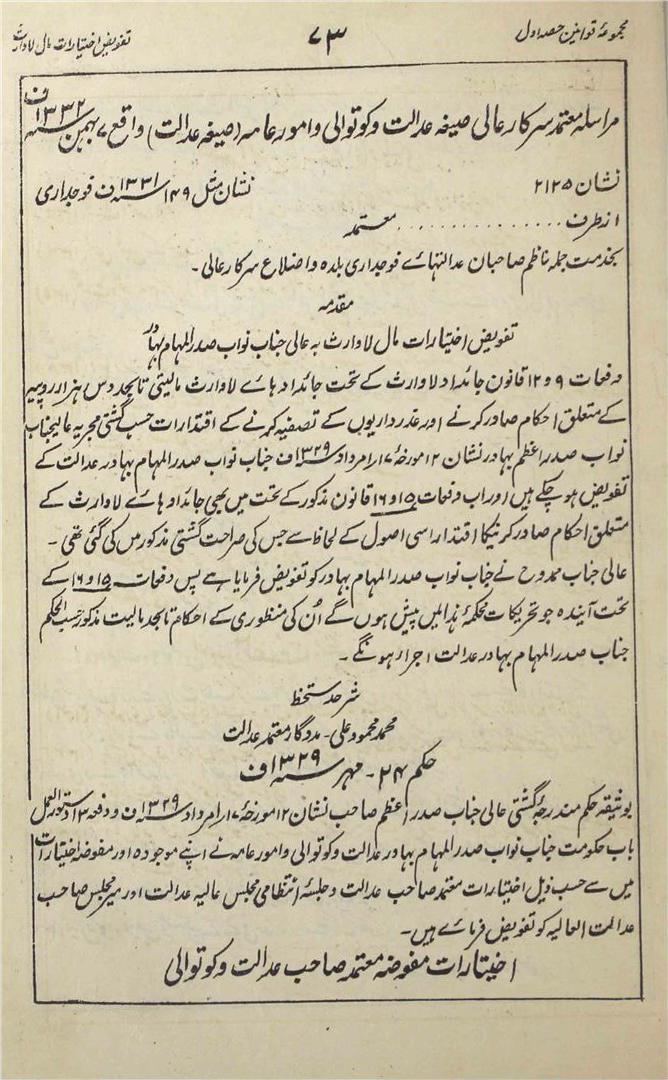 مجموعۂ قوانین حصہ اول
۷۳
تفویض اختیارات مال لاوارث
مراسلہ معتمد سرکار عالی صیغہ عدالت و کوتوالی و امور عامہ (صیغہ عدالت) واقع ۷ بہمن سنہ ۱۳۳۲ ف
نشان ۲۱۲۵
نشان مثل ۱۴۹ سنہ ۱۳۳۱ ف فوجداری
از طرف . . . . . . . . . . . . . . معتمد
بخدمت جملہ ناظم صاحبان عدالتہائے فوجداری بلدہ و اضلاع سرکار عالی ۔
مقدمہ
تفویض اختیارات مال لاوارث بہ عالی جناب نواب صدر المہام بہادر
دفعات ۹ و ۱۲ قانون جائداد لاوارث کے تحت جائداد ہائے لاوارث مالیتی تابحد دس ہزار روپیہ
کے متعلق احکام صادر کرنے اور عذرداریوں کے تصفیہ کرنے کے اقتدارات حسب گشتی مجریہ عالیجناب
نواب صدر اعظم بہادر نشان ۱۲ مورخۂ ۱۷ امرداد سنہ ۱۳۲۹ ف جناب نواب صدر المہام بہادر عدالت کے
تفویض ہو چکے ہیں اور اب دفعات ۱۵ و ۱۶ قانون مذکور کے تحت میں بھی جائداد ہائے لاوارث کے
متعلق احکام صادر کرنیکا اقتدار اسی اصول کے لحاظ سے جس کی صراحت گشتی مذکور میں کی گئی تھی ۔
عالی جناب ممدوح نے جناب نواب صدر المہام بہادر کو تفویض فرمایا ہے پس دفعات ۱۵ و ۱۶ کے
تحت آیندہ جو تحریکات محکمۂ ہذا میں پیش ہوں گے اُن کی منظوری کے احکام تابحد مالیت مذکور حسب الحکم
جناب صدر المہام بہادر عدالت اجرا ہونگے ۔
شرحدستخط
محمد محمود علی ۔ مددگار معتمد عدالت
حکم ۲۴ ۔ مہر سنہ ۱۳۲۹ ف
بوثیقہ حکم مندرجۂ گشتی عالی جناب صدر اعظم صاحب نشان ۱۲ مورخۂ ۱۷ امرداد سنہ ۱۳۲۹ ف و دفعہ ۱۳ دستور العمل
باب حکومت جناب نواب صدر المہام بہادر عدالت و کوتوالی و امور عامہ نے اپنے موجودہ اور مفوضہ اختیارات
میں سے حسب ذیل اختیارات معتمد صاحب عدالت و جلسۂ انتظامی مجلس عالیہ عدالت اور میر مجلس صاحب
عدالت العالیہ کو تفویض فرمائے ہیں ۔
اختیارات مفوضہ معتمد صاحب عدالت و کوتوالی